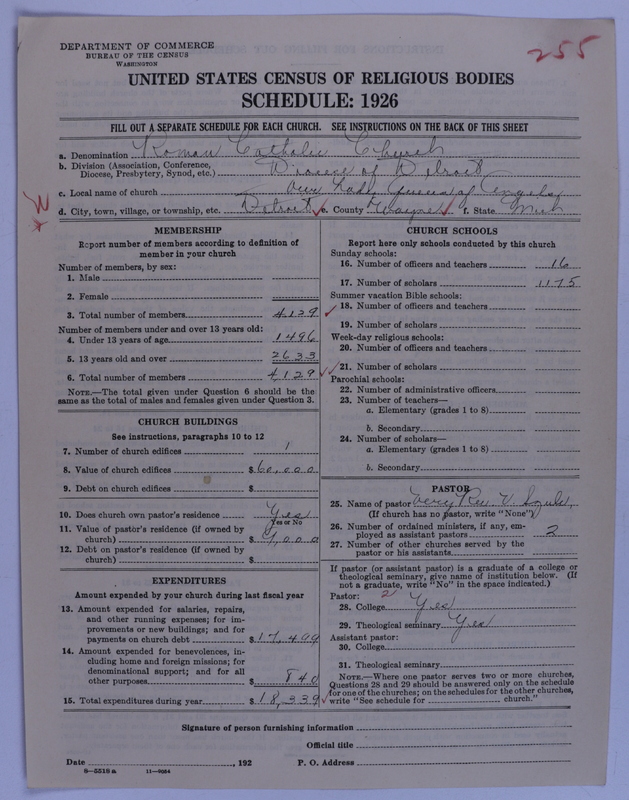 DEPARTMENT OF COMMERCE
BUREAU OF THE CENSUS
WASHINGTON
255
UNITED STATES CENSUS OF RELIGIOUS BODIES
SCHEDULE: 1926
FILL OUT A SEPARATE SCHEDULE FOR EACH CHURCH. SEE INSTRUCTIONS ON THE BACK OF THIS SHEET
a. Denomination Roman Catholic Church
b. Division (Association, Conference,
Diocese, Presbytery, Synod, etc.) Diocese of Detroit
c. Local name of church Our Lady Queen of Angels
d. City, town, village, or township, etc. Detroit e. County Wayne f. State Mich
MEMBERSHIP
Report number of members according to definition of
member in your church
Number of members, by sex:
1. Male
2. Female
3. Total number of members 4129
Number of members under and over 13 years old:
4. Under 13 years of age 1496
5. 13 years old and over 2633
6. Total number of members 4129
NOTE.—The total given under Question 6 should be the
same as the total of males and females given under Question 3.
CHURCH BUILDINGS
See instructions, paragraphs 10 to 12
7. Number of church edifices 1
8. Value of church edifices $60,000
9. Debt on church edifices $
10. Does church own pastor's residence Yes
Yes or No
11. Value of pastor's residence (if owned by
church) $ ,000
12. Debt on pastor's residence (if owned by
church) $
EXPENDITURES
Amount expended by your church during last fiscal year
13. Amount expended for salaries, repairs,
and other running expenses; for im-
provements or new buildings; and for
payments on church debt $17,499
14. Amount expended for benevolences, in-
cluding home and foreign missions; for
denominational support; and for all
other purposes $840
15. Total expenditures during year $18,339
CHURCH SCHOOLS
Report here only schools conducted by this church
Sunday schools:
16. Number of officers and teachers 16
17. Number of scholars 1175
Summer vacation Bible schools:
18. Number of officers and teachers
19. Number of scholars
Week-day religious schools:
20. Number of officers and teachers
21. Number of scholars
Parochial schools:
22. Number of administrative officers
23. Number of teachers—
a. Elementary (grades 1 to 8)
b. Secondary
24. Number of scholars—
a. Elementary (grades 1 to 8)
b. Secondary
PASTOR
25. Name of pastor Very Rev. V.
(If church has no pastor, write "None")
26. Number of ordained ministers, if any, em-
ployed as assistant pastors 2
27. Number of other churches served by the
pastor or his assistants
If pastor (or assistant pastor) is a graduate of a college or
theological seminary, give name of institution below. (If
not a graduate, write "No" in the space indicated.)
Pastor: 2
28. College Yes
29. Theological seminary Yes
Assistant pastor:
30. College
31. Theological seminary
NOTE.—Where one pastor serves two or more churches,
Questions 28 and 29 should be answered only on the schedule
for one of the churches; on the schedules for the other churches,
write "See schedule for church."
Signature of person furnishing information
Official title
Date , 192 P. O. Address
8—5518a 11—9054